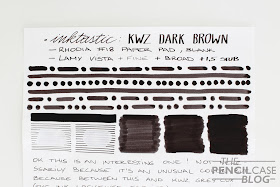 • inktastic: KWZ DARK BROWN
- RHODIA #18 PAPER PAD, BLANK
- LAMY VISTA + FINE + BROAD + 1.5 STUB
OK THIS IS AN INTERESTING ONE! NOT
BECAUSE IT'S AN UNUSUAL
BECAUSE BETWEEN THIS AND KWZ
THE
PENCILCASE
BLOG